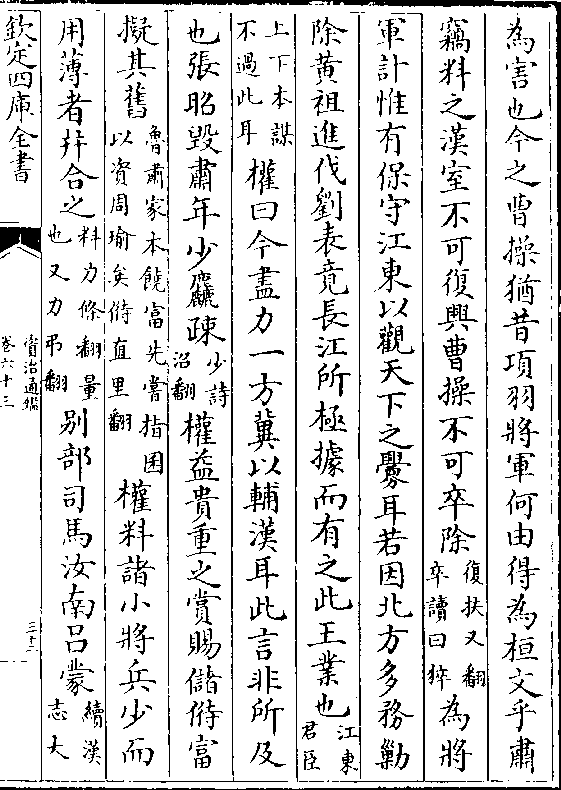 為害也今之曹操猶昔項羽將軍何由得為桓文乎肅
竊料之漢室不可復興曹操不可卒除復扶又翻卒讀曰猝為將
軍計惟有保守江東以觀天下之釁耳若因北方多務勦
除黄祖進伐劉表竟長江所極據而有之此王業也江東君臣
上下本謀不過此耳權曰今盡力一方冀以輔漢耳此言非所及
也張昭毀肅年少麤疎少詩沼翻權益貴重之賞賜儲偫富
擬其舊魯肅家本饒富先嘗指囷以資周瑜矣偫直里翻權料諸小將兵少而
用薄者并合之料力條翻量也又力弔翻别部司馬汝南吕蒙續漢志大
欽定四庫全書
資治通鑑
卷六十三
三十三